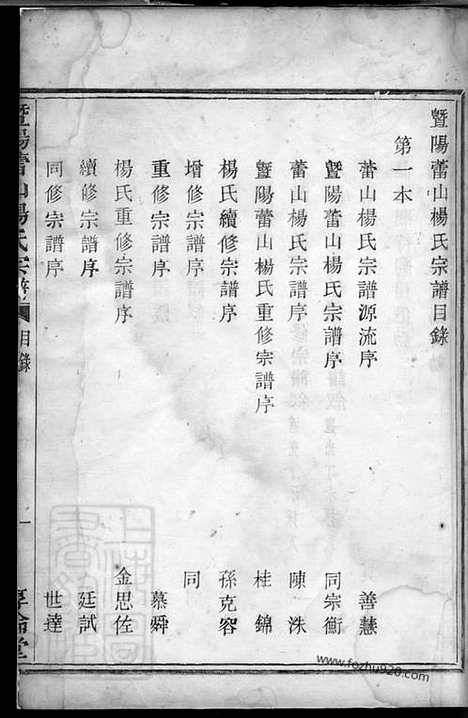 暨陽蕾山楊氏宗譜目錄
第一本
蕾山楊氏宗譜源流序 善慧
暨陽蕾山楊氏宗譜序 同宗衡
蕾山楊氏宗譜序 陳一洙
暨陽蕾山楊氏重修宗譜序 桂錦
楊氏續修宗譜序 孫克容
增修宗譜序 同
重修宗譜序 慕舜
楊氏重修宗譜序 金思佐
續修宗譜序 廷試
同修宗譜序 世達
暨陽蕾山楊氏宗譜 目錄 一
www.fozhu920.com